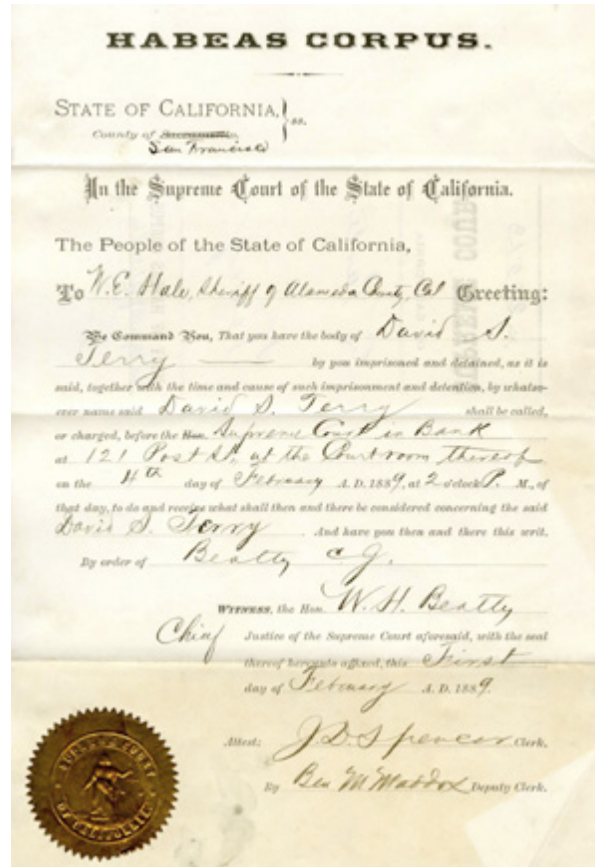 HABEAS CORPUS.
STATE OF CALIFORNIA, } ss.
County of Sacramento,
San Francisco
In the Supreme Court of the State of California.
The People of the State of California,
To W. E. Hale, Sheriff of Alameda County, Cal Greeting:
We Command You, That you have the body of David S.
Terry by you imprisoned and detained, as it is
said, together with the time and cause of such imprisonment and detention, by whatso-
ever name said David S. Terry shall be called,
or charged, before the Hon. Supreme Court in Bank
at 121 Post St. at the Courtroom thereof
on the 4th day of February A. D. 1889, at 2 o'clock P. M., of
that day, to do and receive what shall then and there be considered concerning the said
David S. Terry And have you then and there this writ.
By order of Beatty C J.
WITNESS, the Hon. W. H. Beatty
Chief Justice of the Supreme Court aforesaid, with the seal
thereof hereunto affixed, this First
day of February A. D. 1889.
Attest: J. D. Spencer Clerk.
By Ben M Maddox Deputy Clerk.
SUPREME COURT
OF CALIFORNIA